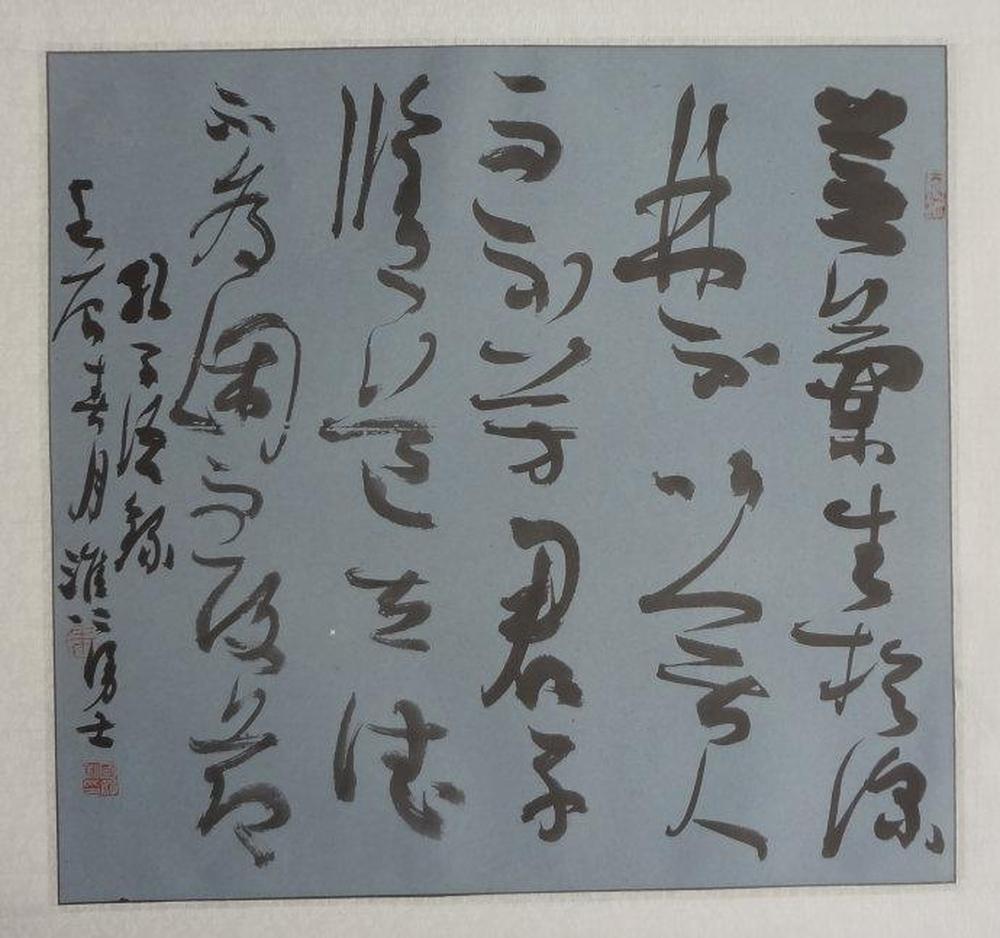 芝蘭生於深
林不以無人
而不芳君子
修道立德
不為困而改節
孔子語錄
壬辰春月 勇士